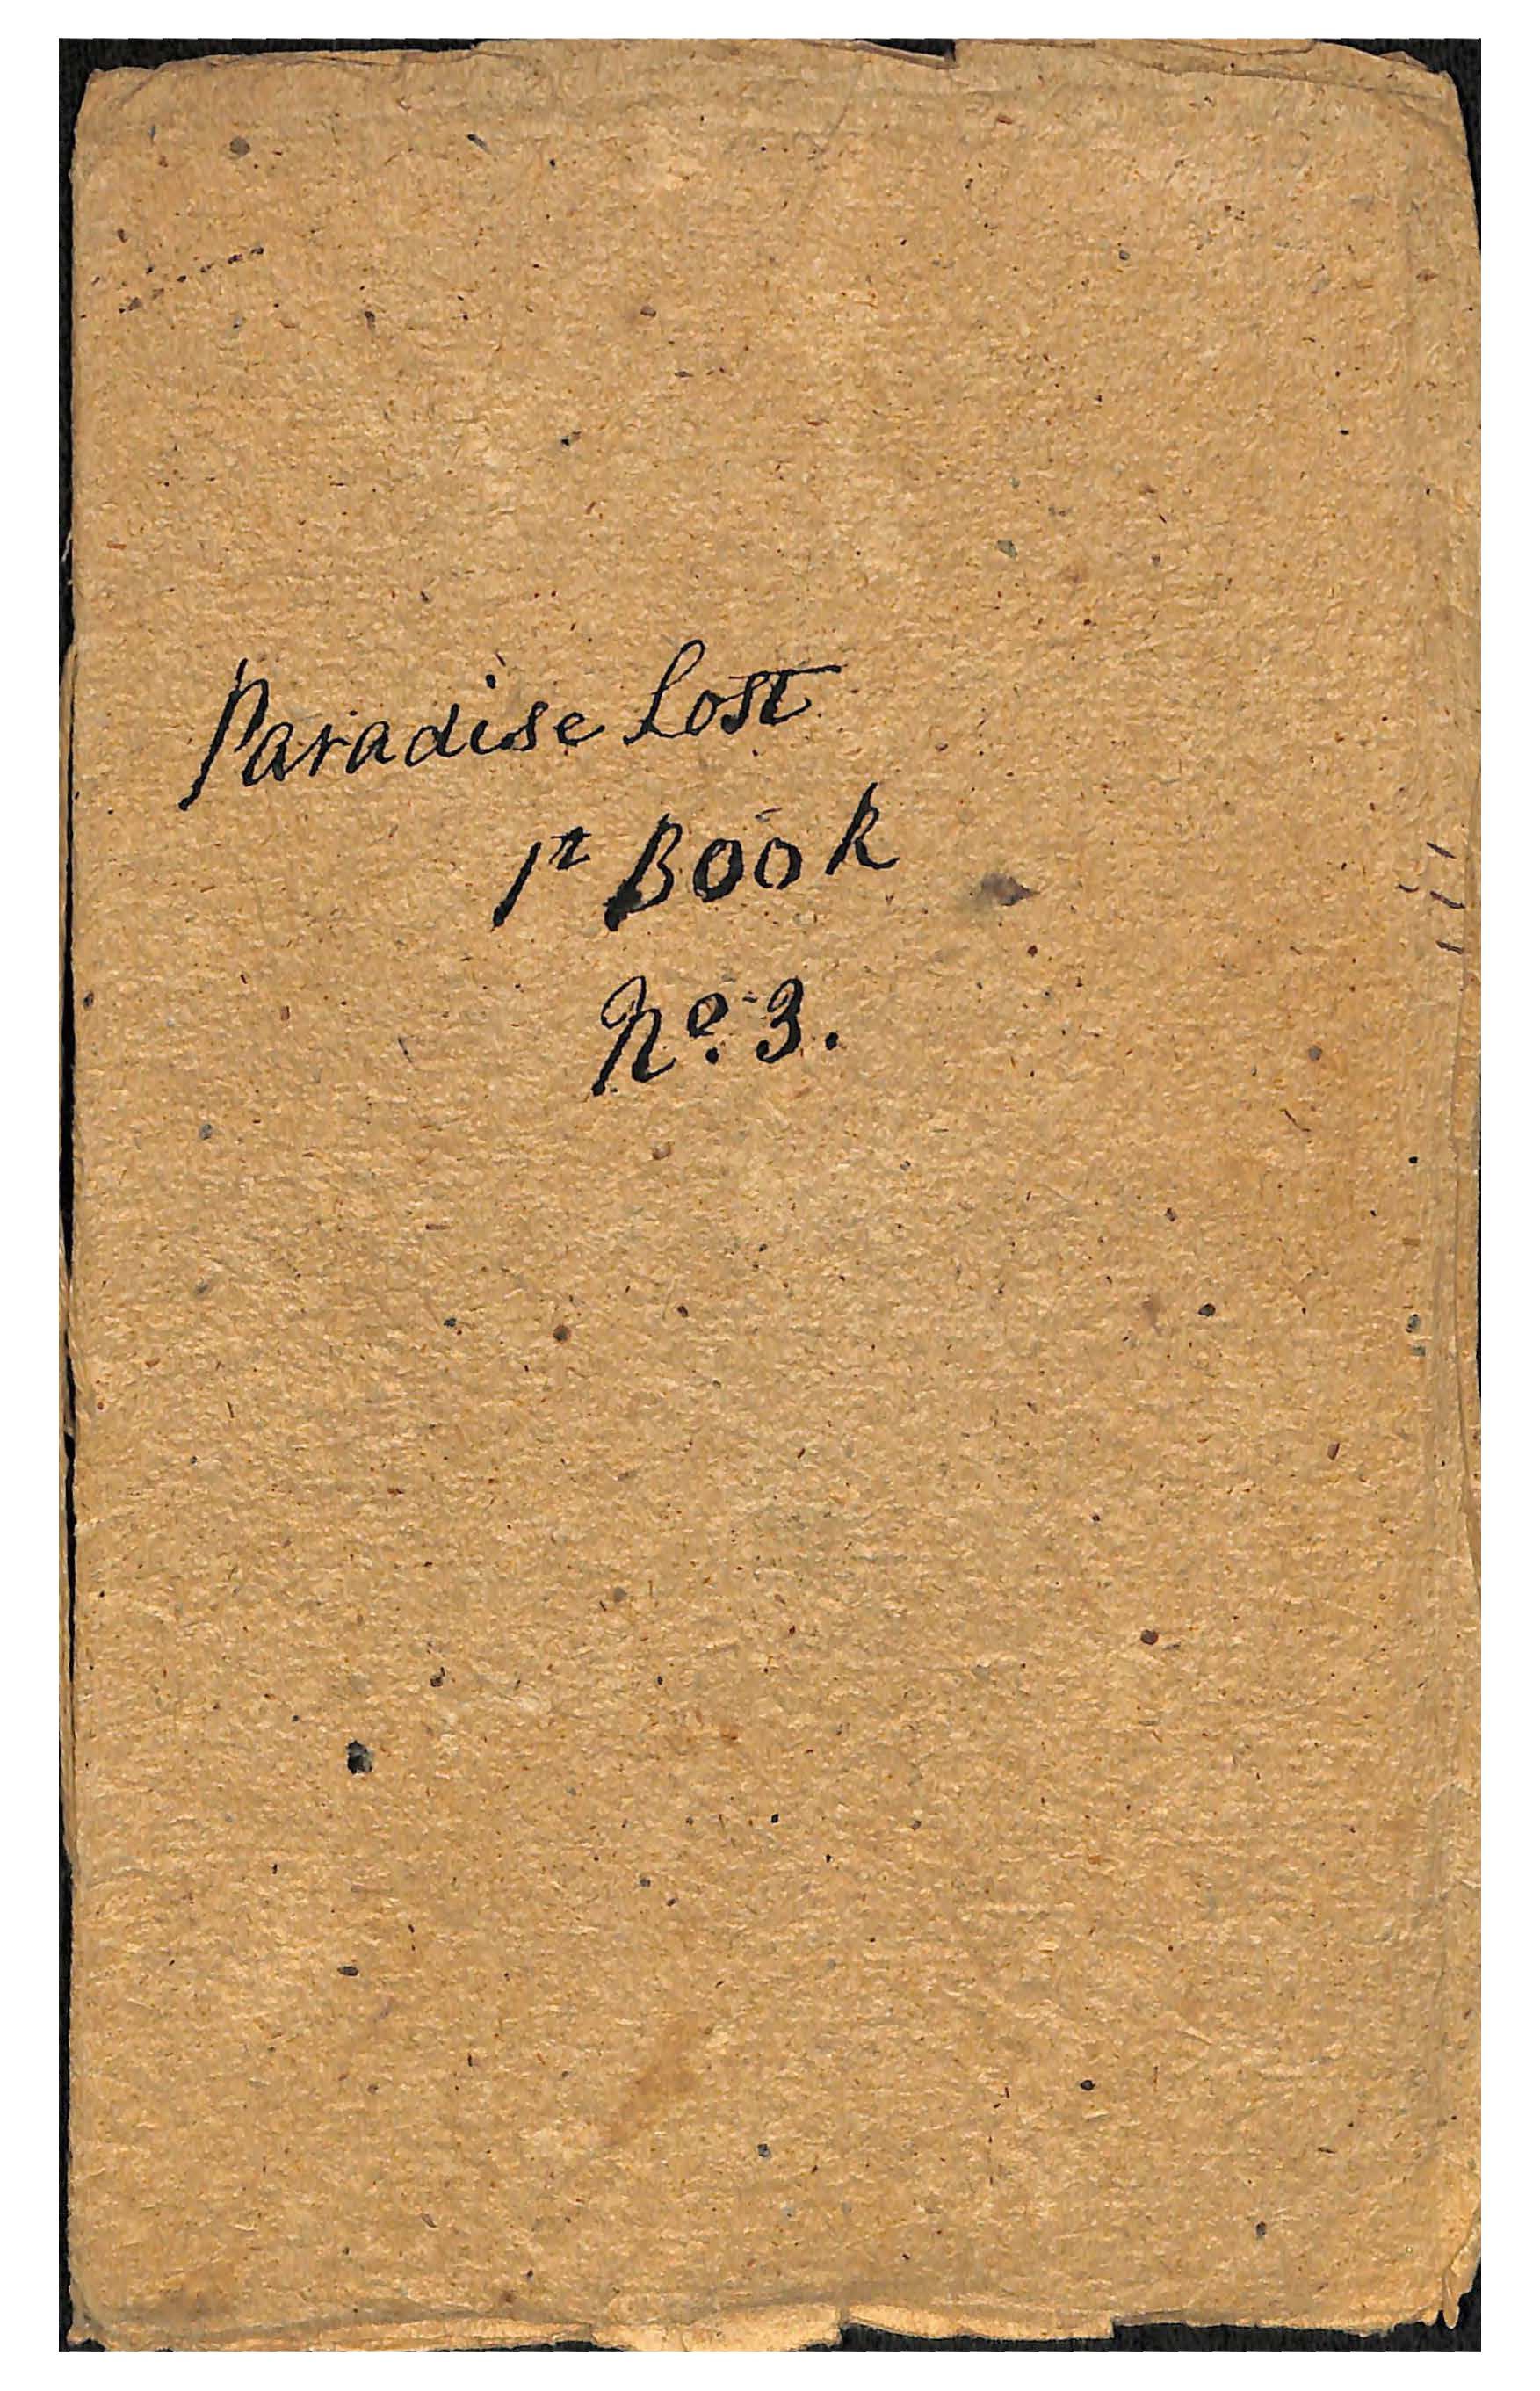 Paradise Lost
1st Book
No. 3.